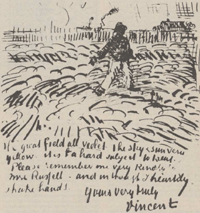 great field all violet the sky & sun very
yellow. it is a hard subject to treat.
Please remember me very kindly to
Mrs Russell - and in thought I heartily
shake hands
Yours very truly
Vincent